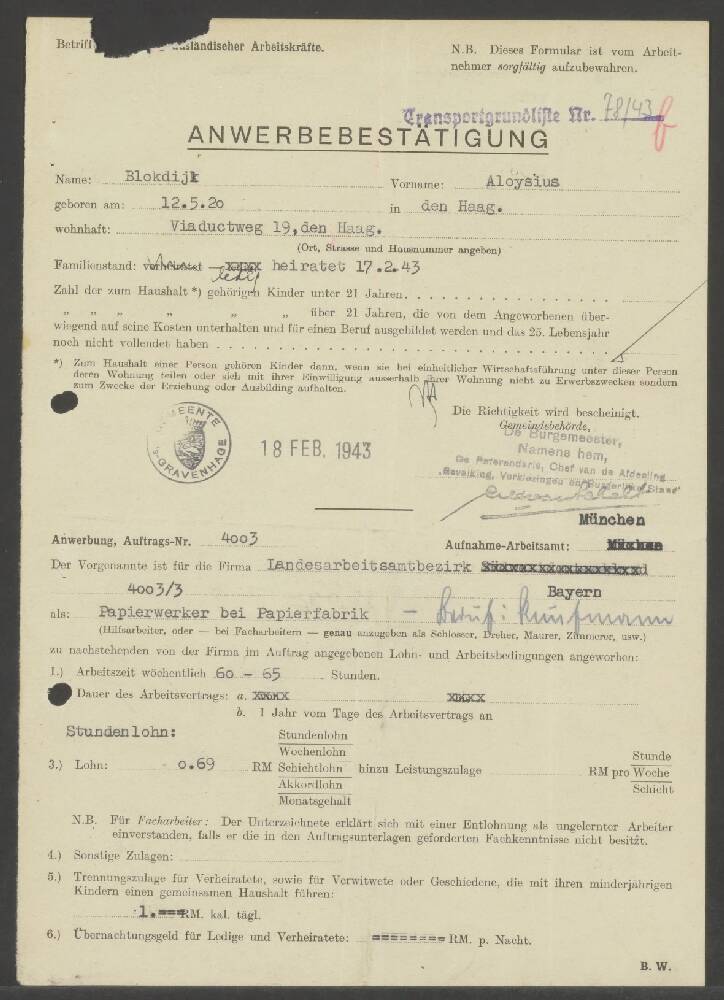 Betriff ausländischer Arbeitskräfte.
N.B. Dieses Formular ist vom Arbeit-
nehmer sorgfältig aufzubewahren.
Transportgrundliste Nr. 78/43
ANWERBEBESTÄTIGUNG
Name: Blokdijk Vorname: Aloysius
geboren am: 12.5.20 in den Haag.
wohnhaft: Viaductweg 19, den Haag.
(Ort, Strasse und Hausnummer angeben)
Familienstand: verheiratet - ledig xxxxx heiratet 17.2.43
Zahl der zum Haushalt *) gehörigen Kinder unter 21 Jahren. . . . . . . . . . . . . . .
„ „ „ „ „ „ über 21 Jahren, die von dem Angeworbenen über-
wiegend auf seine Kosten unterhalten und für einen Beruf ausgebildet werden und das 25. Lebensjahr
noch nicht vollendet haben . . . . . . . . . . . . . . . . . . . . . . . . . .
*) Zum Haushalt einer Person gehören Kinder dann, wenn sie bei einheitlicher Wirtschaftsführung unter dieser Person
deren Wohnung teilen oder sich mit ihrer Einwilligung ausserhalb ihrer Wohnung nicht zu Erwerbszwecken sondern
zum Zwecke der Erziehung oder Ausbildung aufhalten.
GEMEENTE
'S-GRAVENHAGE
18 FEB. 1943
Die Richtigkeit wird bescheinigt.
Gemeindebehörde,
De Burgemeester,
Namens hem,
De Referendaris, Chef van de Afdeeling
Bevolking, Verkiezingen en Burgerlijke Stand
München
Anwerbung, Auftrags-Nr. 4003 Aufnahme-Arbeitsamt:
Der Vorgenannte ist für die Firma Landesarbeitsamtbezirk
4003/3 Bayern
als: Papierwerker bei Papierfabrik - Beruf: Kaufmann
(Hilfsarbeiter, oder — bei Facharbeitern — genau anzugeben als Schlosser, Dreher, Maurer, Zimmerer, usw.)
zu nachstehenden von der Firma im Auftrag angegebenen Lohn- und Arbeitsbedingungen angeworben:
1.) Arbeitszeit wöchentlich 60 - 65 Stunden.
Dauer des Arbeitsvertrags: a. xxxxx xxxxx
b. 1 Jahr vom Tage des Arbeitsvertrags an
Stundenlohn:
Stundenlohn
Wochenlohn
3.) Lohn: 0.69 RM Schichtlohn hinzu Leistungszulage RM pro Woche
Stunde
Akkordlohn
Schicht
Monatsgehalt
N.B. Für Facharbeiter: Der Unterzeichnete erklärt sich mit einer Entlohnung als ungelernter Arbeiter
einverstanden, falls er die in den Auftragsunterlagen geforderten Fachkenntnisse nicht besitzt.
4.) Sonstige Zulagen:
5.) Trennungszulage für Verheiratete, sowie für Verwitwete oder Geschiedene, die mit ihren minderjährigen
Kindern einen gemeinsamen Haushalt führen:
1.=== RM. kal. tägl.
6.) Übernachtungsgeld für Ledige und Verheiratete: ======== RM. p. Nacht.
B. W.